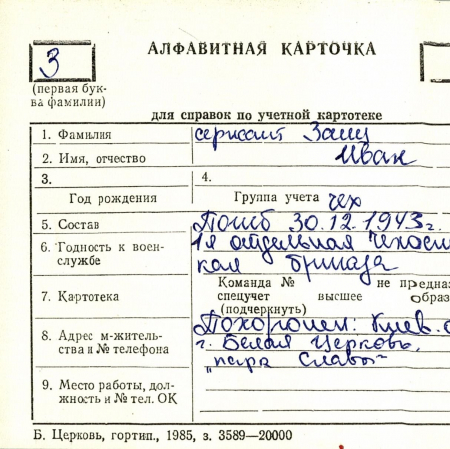 З
АЛФАВИТНАЯ КАРТОЧКА
(первая бук-
ва фамилии)
для справок по учетной картотеке
1. Фамилия сержант Заяц
2. Имя, отчество Иван
3. 4.
Год рождения Группа учета чех
5. Состав Погиб 30.12.1943г.
6. Годность к воен-
службе
1я отдельная чехосл
кая бригада
7. Картотека
Команда № не предназ
спецучет высшее образ
(подчеркнуть)
8. Адрес м-житель-
ства и № телефона
Похоронен: Киев. о
г. Белая Церковь,
"парк Славы"
9. Место работы, дол-
жность и № тел. ОК
Б. Церковь, гортип., 1985, з. 3589—20000